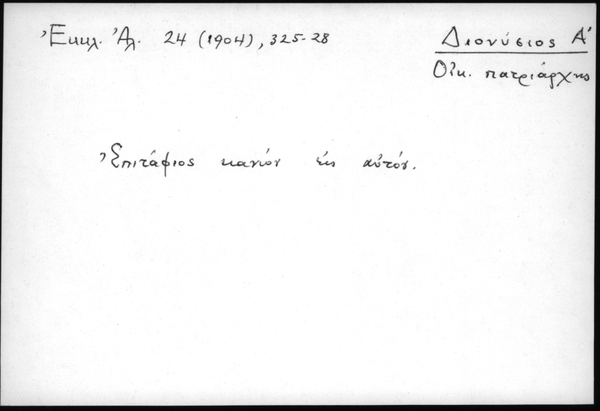 Ἐκκλ. Ἀλ. 24 (1904), 325-28
Διονύσιος Α'
Οἰκ. πατριάρχης
Ἐπιτάφιος κανών εἰς αὐτόν.